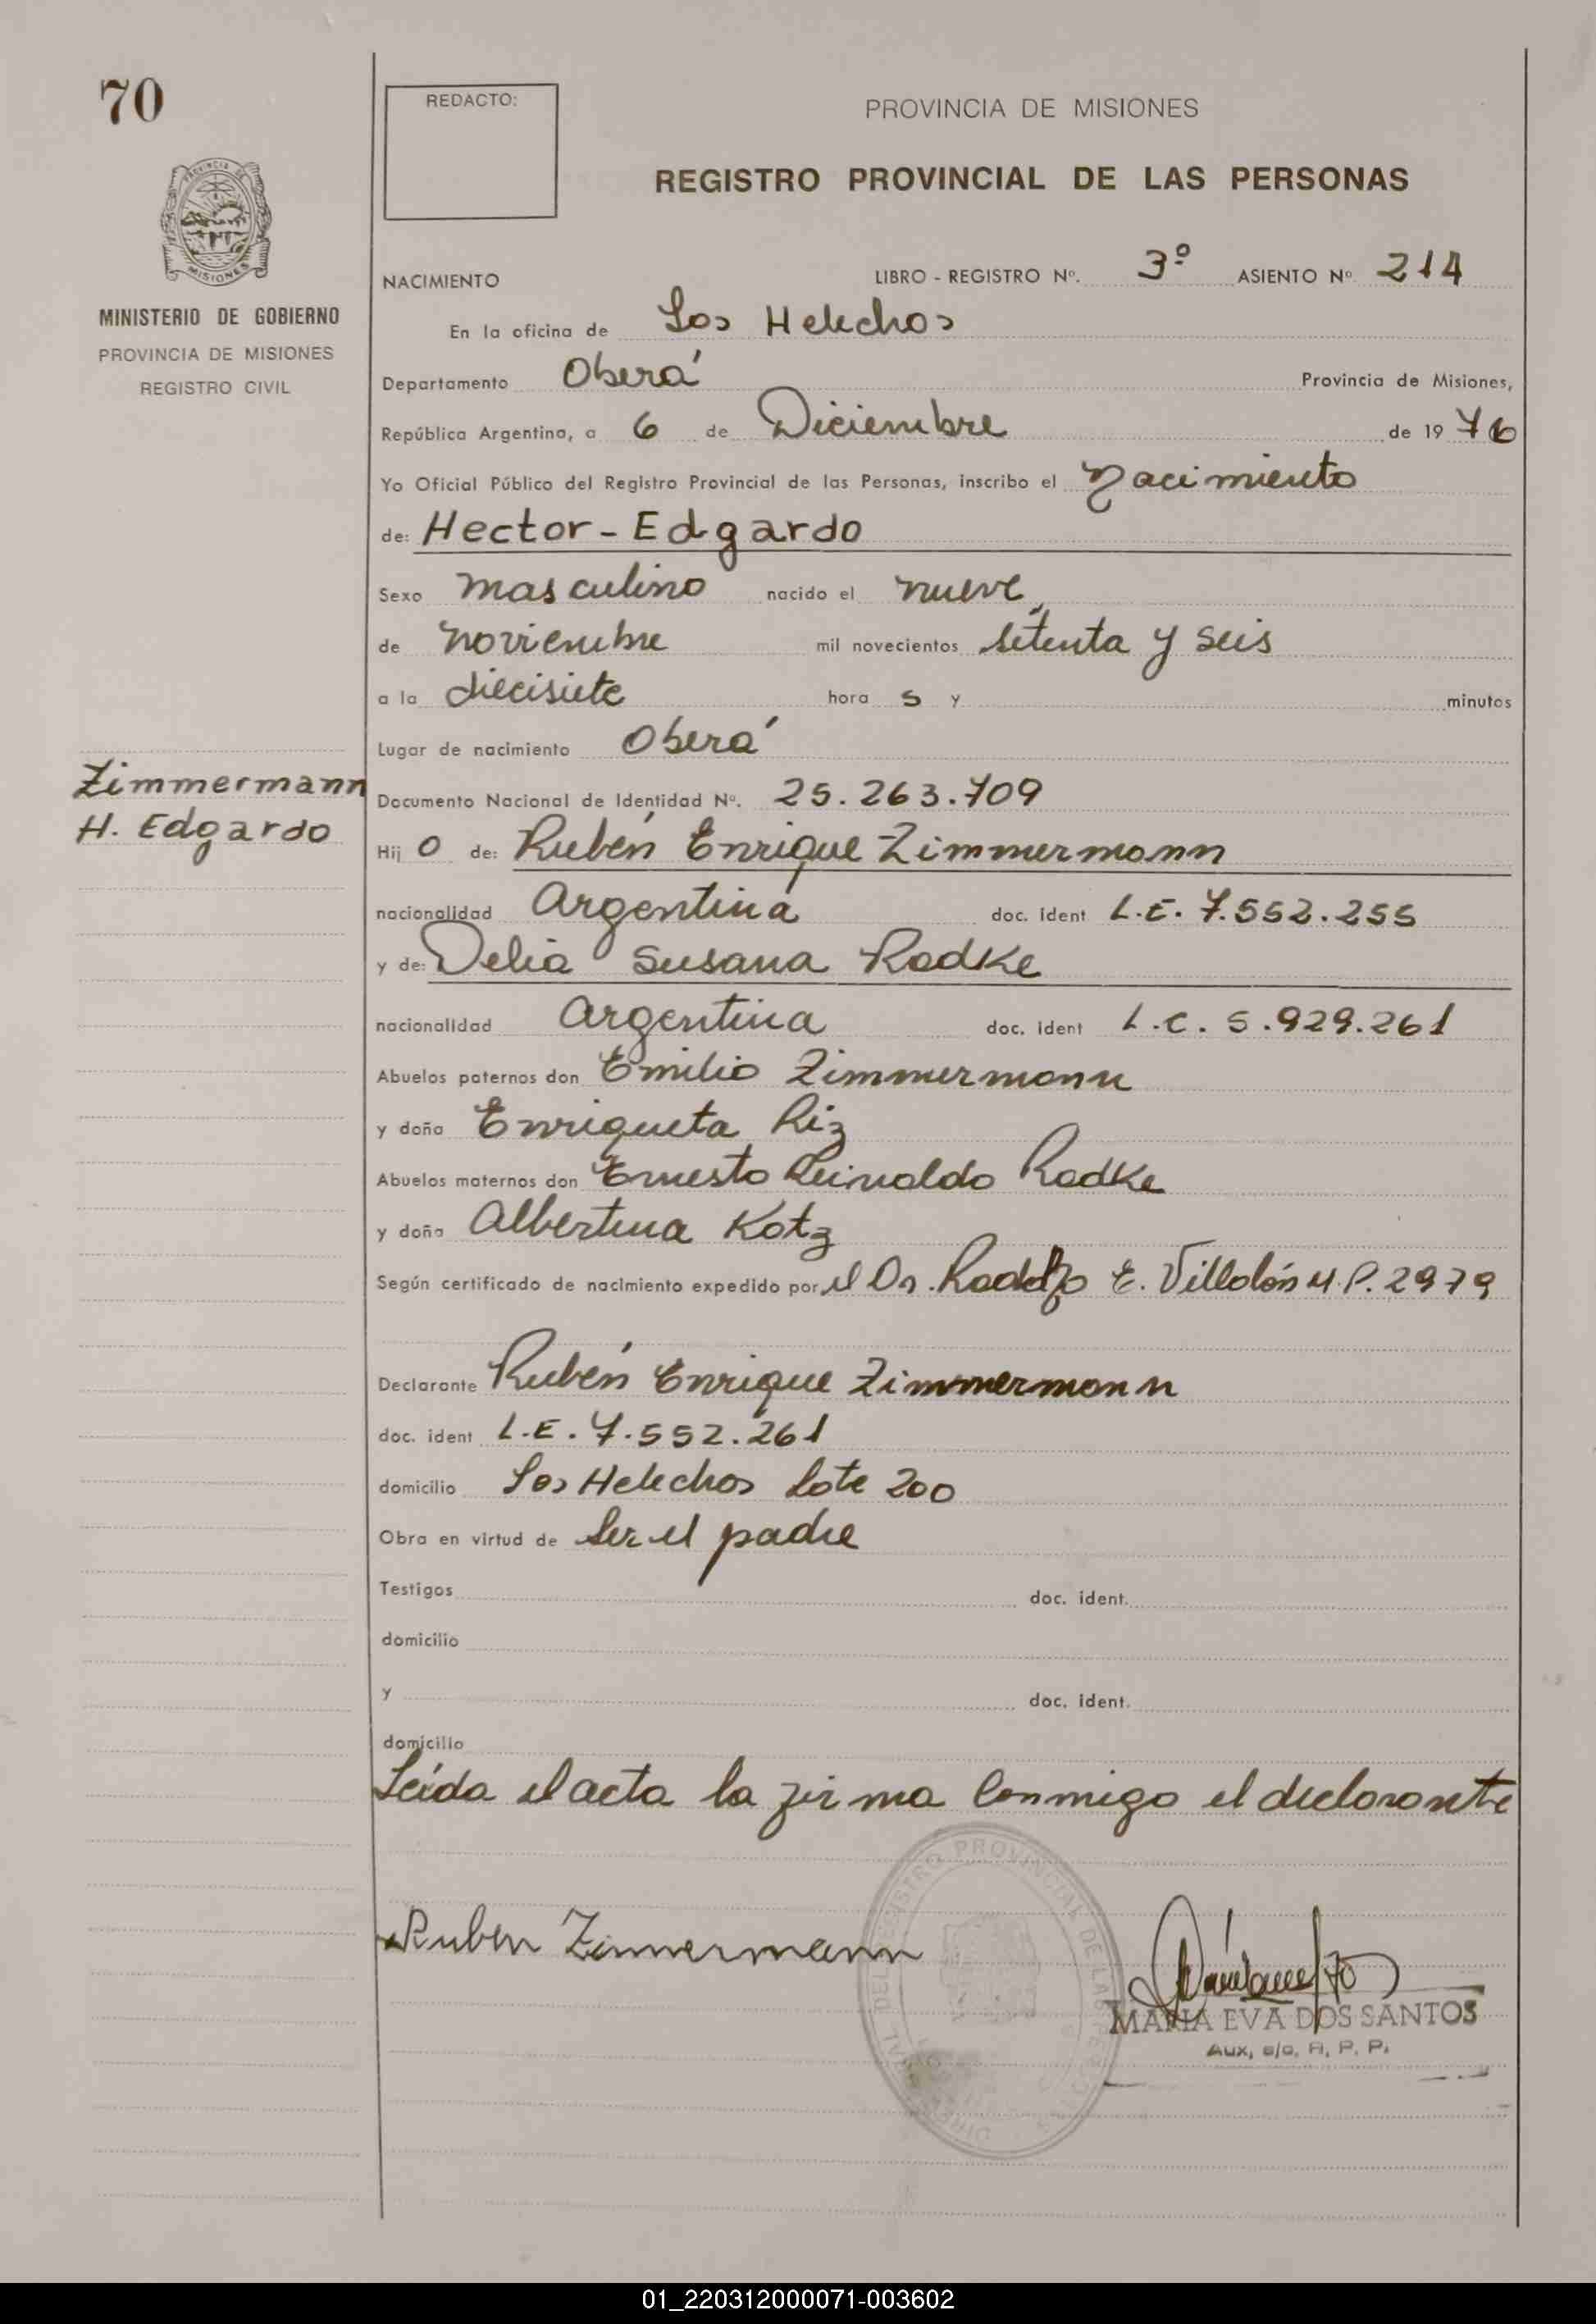 70
REDACTO:
PROVINCIA DE MISIONES
REGISTRO PROVINCIAL DE LAS PERSONAS
PROVINCIA DE
MISIONES
MINISTERIO DE GOBIERNO
PROVINCIA DE MISIONES
REGISTRO CIVIL
NACIMIENTO LIBRO - REGISTRO Nº. 3º ASIENTO Nº 214
En la oficina de Los Helechos
Departamento Oberá Provincia de Misiones,
República Argentina, a 6 de Diciembre de 19 76
Yo Oficial Público del Registro Provincial de las Personas, inscribo el Nacimiento
de: Hector-Edgardo
Sexo masculino nacido el nueve
de noviembre mil novecientos setenta y seis
a la diecisiete hora s y minutos
Lugar de nacimiento Oberá
Zimmermann
H. Edgardo
Documento Nacional de Identidad Nº. 25.263.709
Hij o de: Rubén Enrique Zimmermann
nacionalidad Argentina doc. ident L.E. 7.552.255
y de: Delia Susana Radke
nacionalidad Argentina doc. ident L.C. 5.929.261
Abuelos paternos don Emilio Zimmermann
y doña Enriqueta Riz
Abuelos maternos don Ernesto Reinoldo Radke
y doña Albertina Kotz
Según certificado de nacimiento expedido por el Dr. Rodolfo E. Villalón M.P. 2979
Declarante Rubén Enrique Zimmermann
doc. ident L.E. 7.552.261
domicilio Los Helechos lote 200
Obra en virtud de ser el padre
Testigos doc. ident.
domicilio
y doc. ident.
domicilio
Leída el acta la firma conmigo el declarante
Ruben Zimmermann
DEL REGISTRO PROVINCIAL DE LAS PERSONAS
MARIA EVA DOS SANTOS
Aux, a/c, R. P. P.
01_220312000071-003602